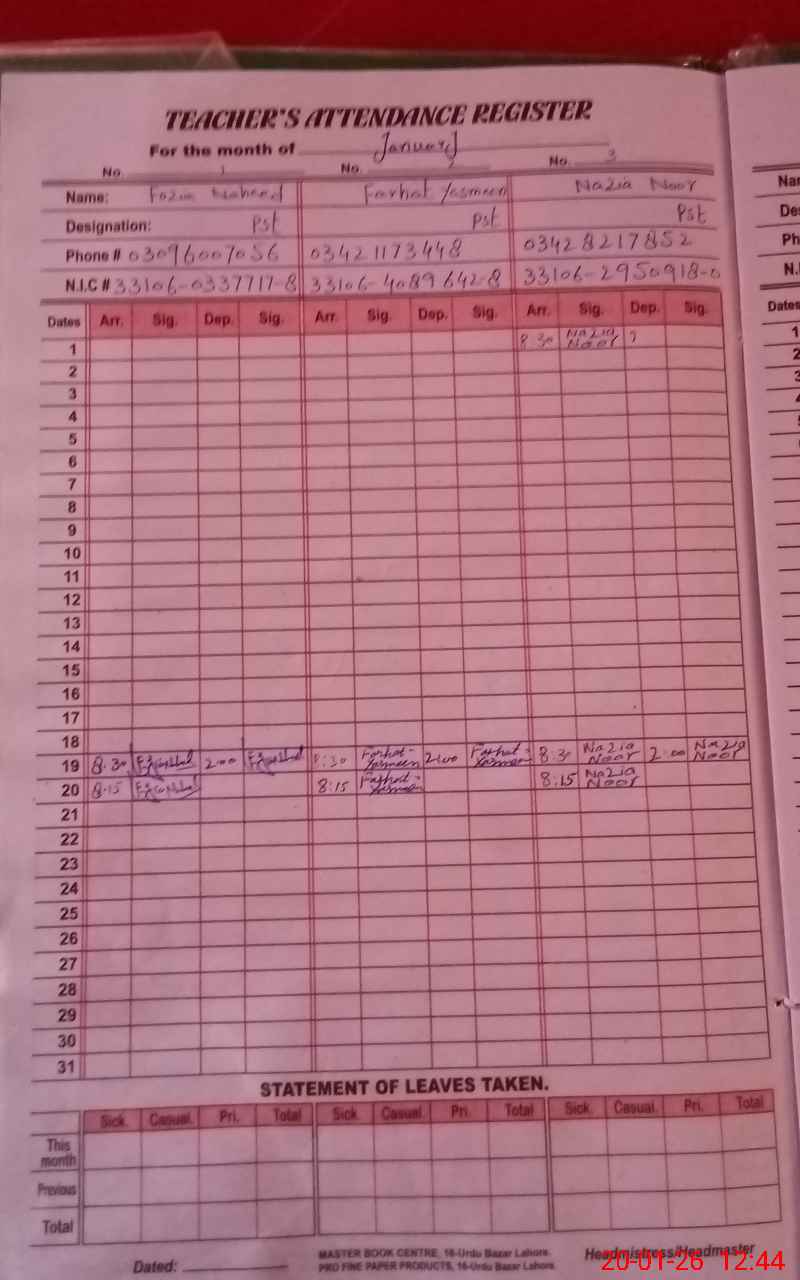 TEACHER'S ATTENDANCE REGISTER
For the month of January
No. 1 No. 2 No. 3
Name: Fozia Naheed Farhat Yasmeen Nazia Noor
Designation: Pst Pst Pst
Phone # 03096007056 03421173448 03428217852
N.I.C # 33106-0337717-8 33106-4089642-8 33106-2950918-0
Dates Arr. Sig. Dep. Sig. Arr. Sig. Dep. Sig. Arr. Sig. Dep. Sig.
1 8:30 Nazia Noor
2
3
4
5
6
7
8
9
10
11
12
13
14
15
16
17
18
19 8:30 2:00 8:30 Farhat Yasmeen 2:00 Farhat Yasmeen 8:30 Nazia Noor 2:00 Nazia Noor
20 8:15 8:15 Farhat Yasmeen 8:15 Nazia Noor
21
22
23
24
25
26
27
28
29
30
31
STATEMENT OF LEAVES TAKEN.
Sick. Casual. Pri. Total Sick. Casual. Pri. Total Sick. Casual. Pri. Total
This month
Previous
Total
Dated:
MASTER BOOK CENTRE, 16-Urdu Bazar Lahore.
PRO FINE PAPER PRODUCTS, 16-Urdu Bazar Lahore.
Headmistress/Headmaster
20-01-26 12:44
Nar
De
Ph
N.I
Dates
1
2
3